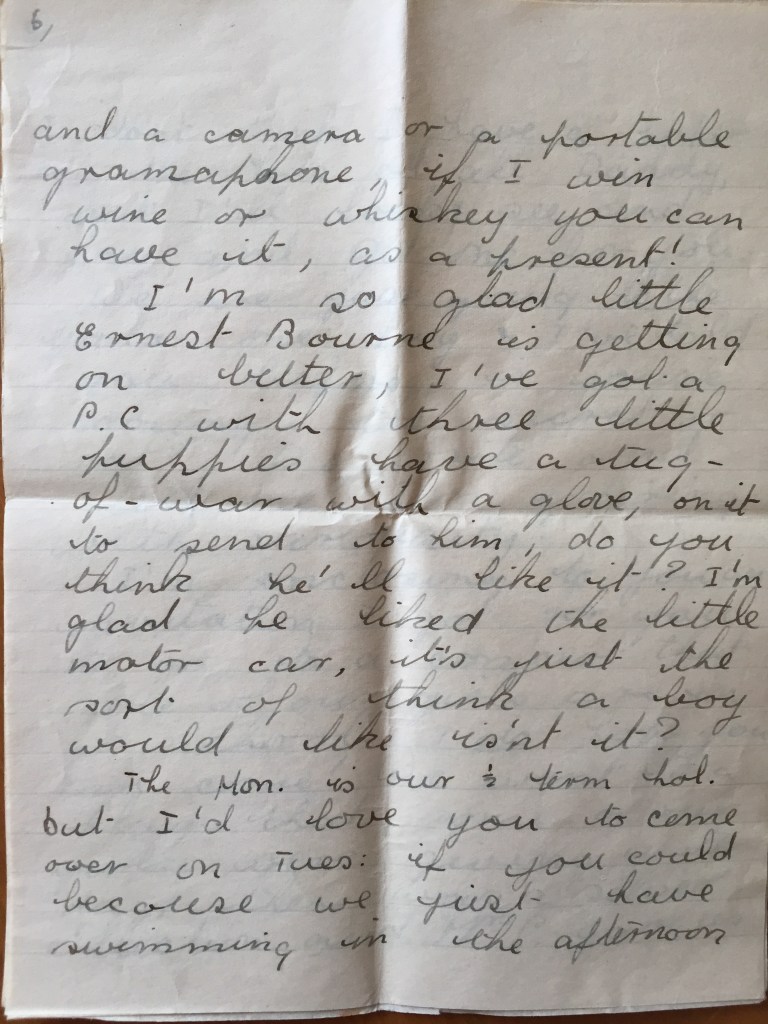 6,
and a camera or a portable
gramaphone, if I win
wine or whiskey you can
have it, as a present!
I'm so glad little
Ernest Bourne is getting
on better, I've got a
P.C with three little
puppies have a tug-
of-war with a glove, on it
to send to him, do you
think he'll like it? I'm
glad he liked the little
motor car, it's just the
sort of think a boy
would like is'nt it?
The Mon. is our ½ term hol.
but I'd love you to come
over on Tues: if you could
because we just have
swimming in the afternoon